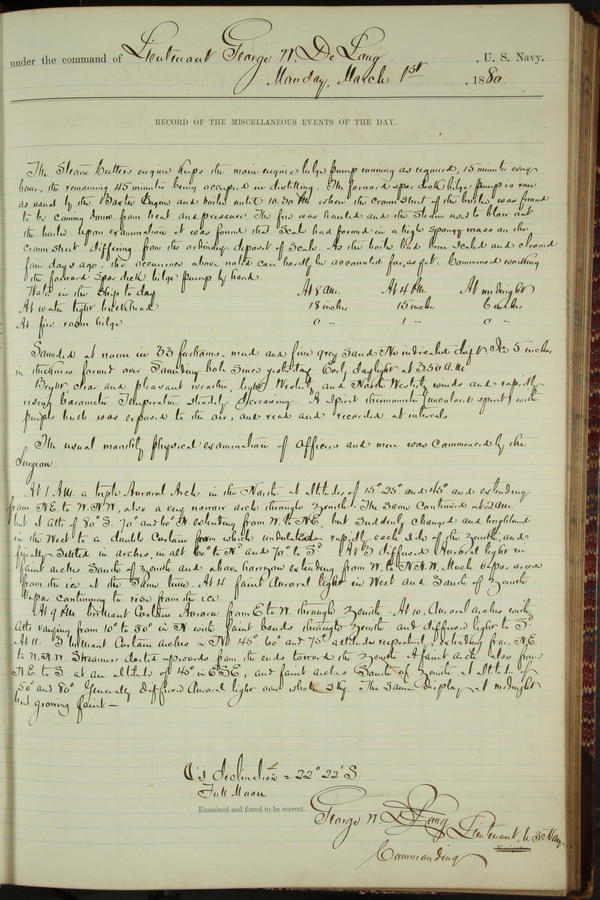 under the command of Lieutenant George W. De Long, U. S. Navy,
Monday, March 1st, 1880.
RECORD OF THE MISCELLANEOUS EVENTS OF THE DAY.
The Steam Cutters engine keeps the main engine bilge pump running as required, 15 minutes every
hour, the remaining 45 minutes being occupied in distilling. The forward spar deck bilge pump is run
as usual by the Baxter Engine and boiler until 10.30 PM when the crown sheet of the boiler was found
to be coming down from heat and pressure. The fire was hauled and the Steam used to blow out
the boiler. Upon examination it was found that Scale had formed in a high spongy mass on the
crown sheet differing from the ordinary deposit of Scale. As the boiler had been Scaled and cleaned
few days ago, the occurrence above noted can hardly be accounted for, as yet. Commenced working
the forward Spar deck bilge pump by hand.
Water in the Ship to day At 8 am. At 4 PM. At midnight
At water tight bulkhead 18 inches 15 inches 6 inches
At fire room bilge 0 " 1 " 0 "
Sounded at noon in 33 fathoms - mud and fine grey Sand. No indicated drift. Ice 5 inches
in thickness formed over Sounding hole Since yesterday. Early daylight at 3.50 a.m.
Bright clear and pleasant weather, light Westerly and North Westerly winds and rapidly
rising barometer. Temperature Steadily decreasing. A Spirit thermometer (uncolored spirit) with
purple bulb was exposed to the air, and read and recorded at intervals.
The usual monthly physical examination of Officers and men was commenced by the
Surgeon.
At 1 AM. a triple Auroral Arch in the North at altitudes of 15° 25° and 45° and extending
from NE to WNW, also a very narrow arch through Zenith. The Same Continued at 2 am.
but at alts of 80° S. 70° and 60° N extending from W. to NE, but Suddenly changed and
in the West to a double Curtain from which undulated rapidly each Side of the Zenith, and
finally Settled in arches, in alt 60° to N° and 70° to S° At 3 diffused Auroral light in
faint arches South of Zenith and above horizon extending from W. to N.N.W. Much vapor arose
from the ice at the Same time. At 4 faint Auroral light in West and South of Zenith.
Vapor continuing to rise from the ice.
At 9 PM brilliant Curtain Aurora from E to W. through Zenith. At 10. Auroral arches with
alts varying from 10° to 50° in N with faint bands through Zenith and diffused light to S°
At 11. 3 brilliant Curtain arches in N° 45° 60° and 75° altitudes respectively, extending from NE
to W.N.W. Streamers darted upwards from the ends toward the Zenith. A faint arch also from
N.E to S at an altitude of 45° in ESE, and faint arches South of Zenith at altitudes of
50° and 80° Generally diffused Auroral light over whole Sky. The Same display at midnight
but growing faint —
☾'s declination = 22° 22' S.
Full Moon
Examined and found to be correct.
George W. De Long Lieutenant, U.S. Navy.
Navigator.
Commanding